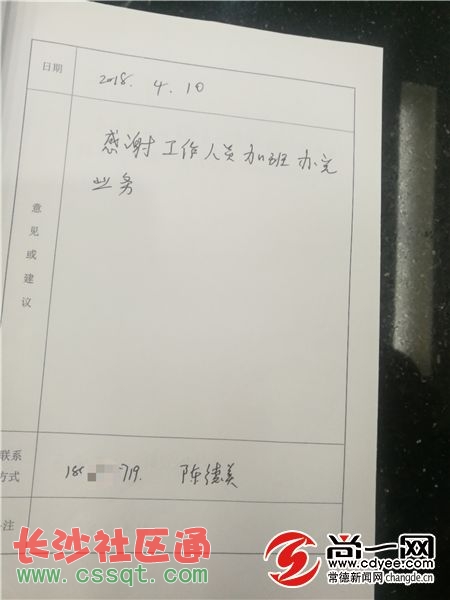 日期
2018. 4. 10
感谢工作人员加班办完
业务
意见或建议
联系
方式
185 719. 陈德美
注
长沙社区通
www.cssqt.com
尚一网
www.cdyee.com
常德新闻网changde.cn